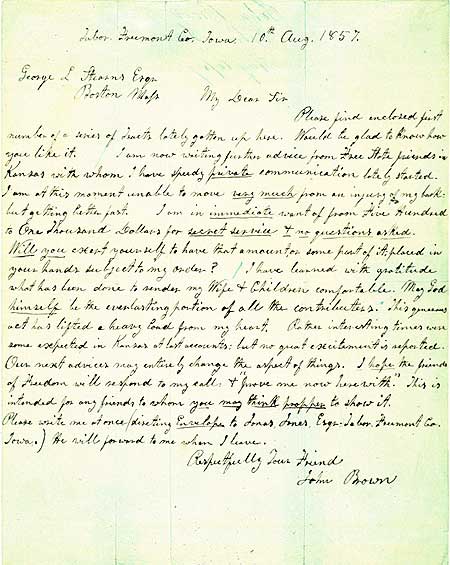 Tabor, Freemont Co, Iowa, 10th Aug. 1857.
George L Stearns Esqr
Boston Mass
My Dear Sir
Please find enclosed first
number of a series of Tracts lately gotten up here. Would be glad to know how
you like it. I am now waiting further advice from Free State friends in
Kansas with whom I have speedy private communication lately started.
I am at this moment unable to move very much from an injury of my back:
but getting better fast. I am in immediate want of from Five Hundred
to One Thousand Dollars for secret service & no questions asked.
Will you exert yourself to have that amount or some part of it; placed in
your hands subject to my order? I have learned with gratitude
what has been done to render my Wife & Children comfortable. May God
himself be the everlasting portion of all the contributers. This generous
act has lifted a heavy load from my heart. Rather interesting times were
some expected in Kansas at last accounts: but no great excitement is reported.
Our next advices may entirely change the aspect of things. I hope the friends
of Freedom will respond to my call: & "prove me now herewith." This is
intended for any friends to whom you may think propper to show it.
Please write me at once (directing Envelope to Jonas Jones, Esqr. Tabor, Freemont Co.
Iowa.) He will forward to me when I leave.
Respectfully Your Friend
John Brown